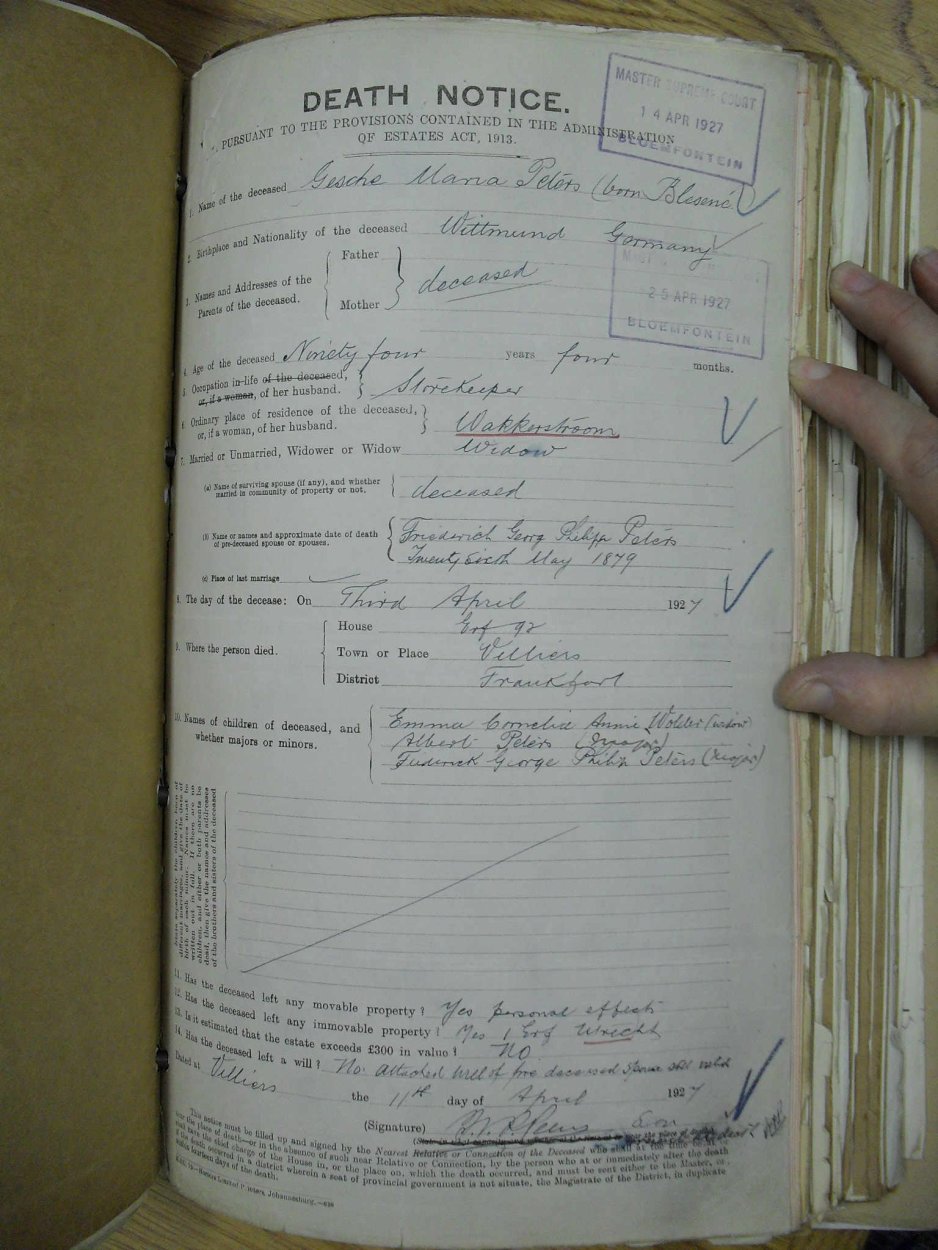 DEATH NOTICE.
PURSUANT TO THE PROVISIONS CONTAINED IN THE ADMINISTRATION
OF ESTATES ACT, 1913.
MASTER SUPREME COURT
14 APR 1927
BLOEMFONTEIN
1. Name of the deceased Gesche Maria Peters (born Blesené)
2. Birthplace and Nationality of the deceased Wittmund Germany
25 APR 1927
BLOEMFONTEIN
3. Names and Addresses of the Parents of the deceased. Father Mother deceased
4. Age of the deceased Ninety four years four months.
5. Occupation in life of the deceased,
or, if a woman, of her husband. Storekeeper
6. Ordinary place of residence of the deceased,
or, if a woman, of her husband. Wakkerstroom
7. Married or Unmarried, Widower or Widow Widow
(a) Name of surviving spouse (if any), and whether
married in community of property or not. deceased
(b) Name or names and approximate date of death
of pre-deceased spouse or spouses. Friederich Georg Philipp Peters
Twenty Sixth May 1879
(c) Place of last marriage
8. The day of the decease: On Third April 1927
9. Where the person died.
House Erf 92
Town or Place Villiers
District Frankfort
10. Names of children of deceased, and
whether majors or minors.
Emma Cornelia Annie Wolder (widow)
Albert Peters (major)
Frederick George Philip Peters (major)
State separately the children born of
different marriages, and give the date of
birth of each minor. Names must be
written out in full. If there are no
children, and either or both parents be
dead, then give the names and addresses
of the brothers and sisters of the deceased
11. Has the deceased left any movable property? Yes personal effects
12. Has the deceased left any immovable property? Yes 1 Erf Utrecht
13. Is it estimated that the estate exceeds £300 in value? NO
14. Has the deceased left a will? No. attached will of pre deceased spouse still valid
Dated at Villiers the 11th day of April 1927
(Signature) Son
This notice must be filled up and signed by the Nearest Relative or Connection of the Deceased who shall at
near the place of death—or in the absence of such near Relative or Connection, by the person who at or immediately after the death
shall have the chief charge of the House in, or the place on, which the death occurred, and must be sent either to the Master, or,
if the death occurred in a district wherein a seat of provincial government is not situate, the Magistrate of the District, in duplicate
within fourteen days of the death.
Johannesburg.